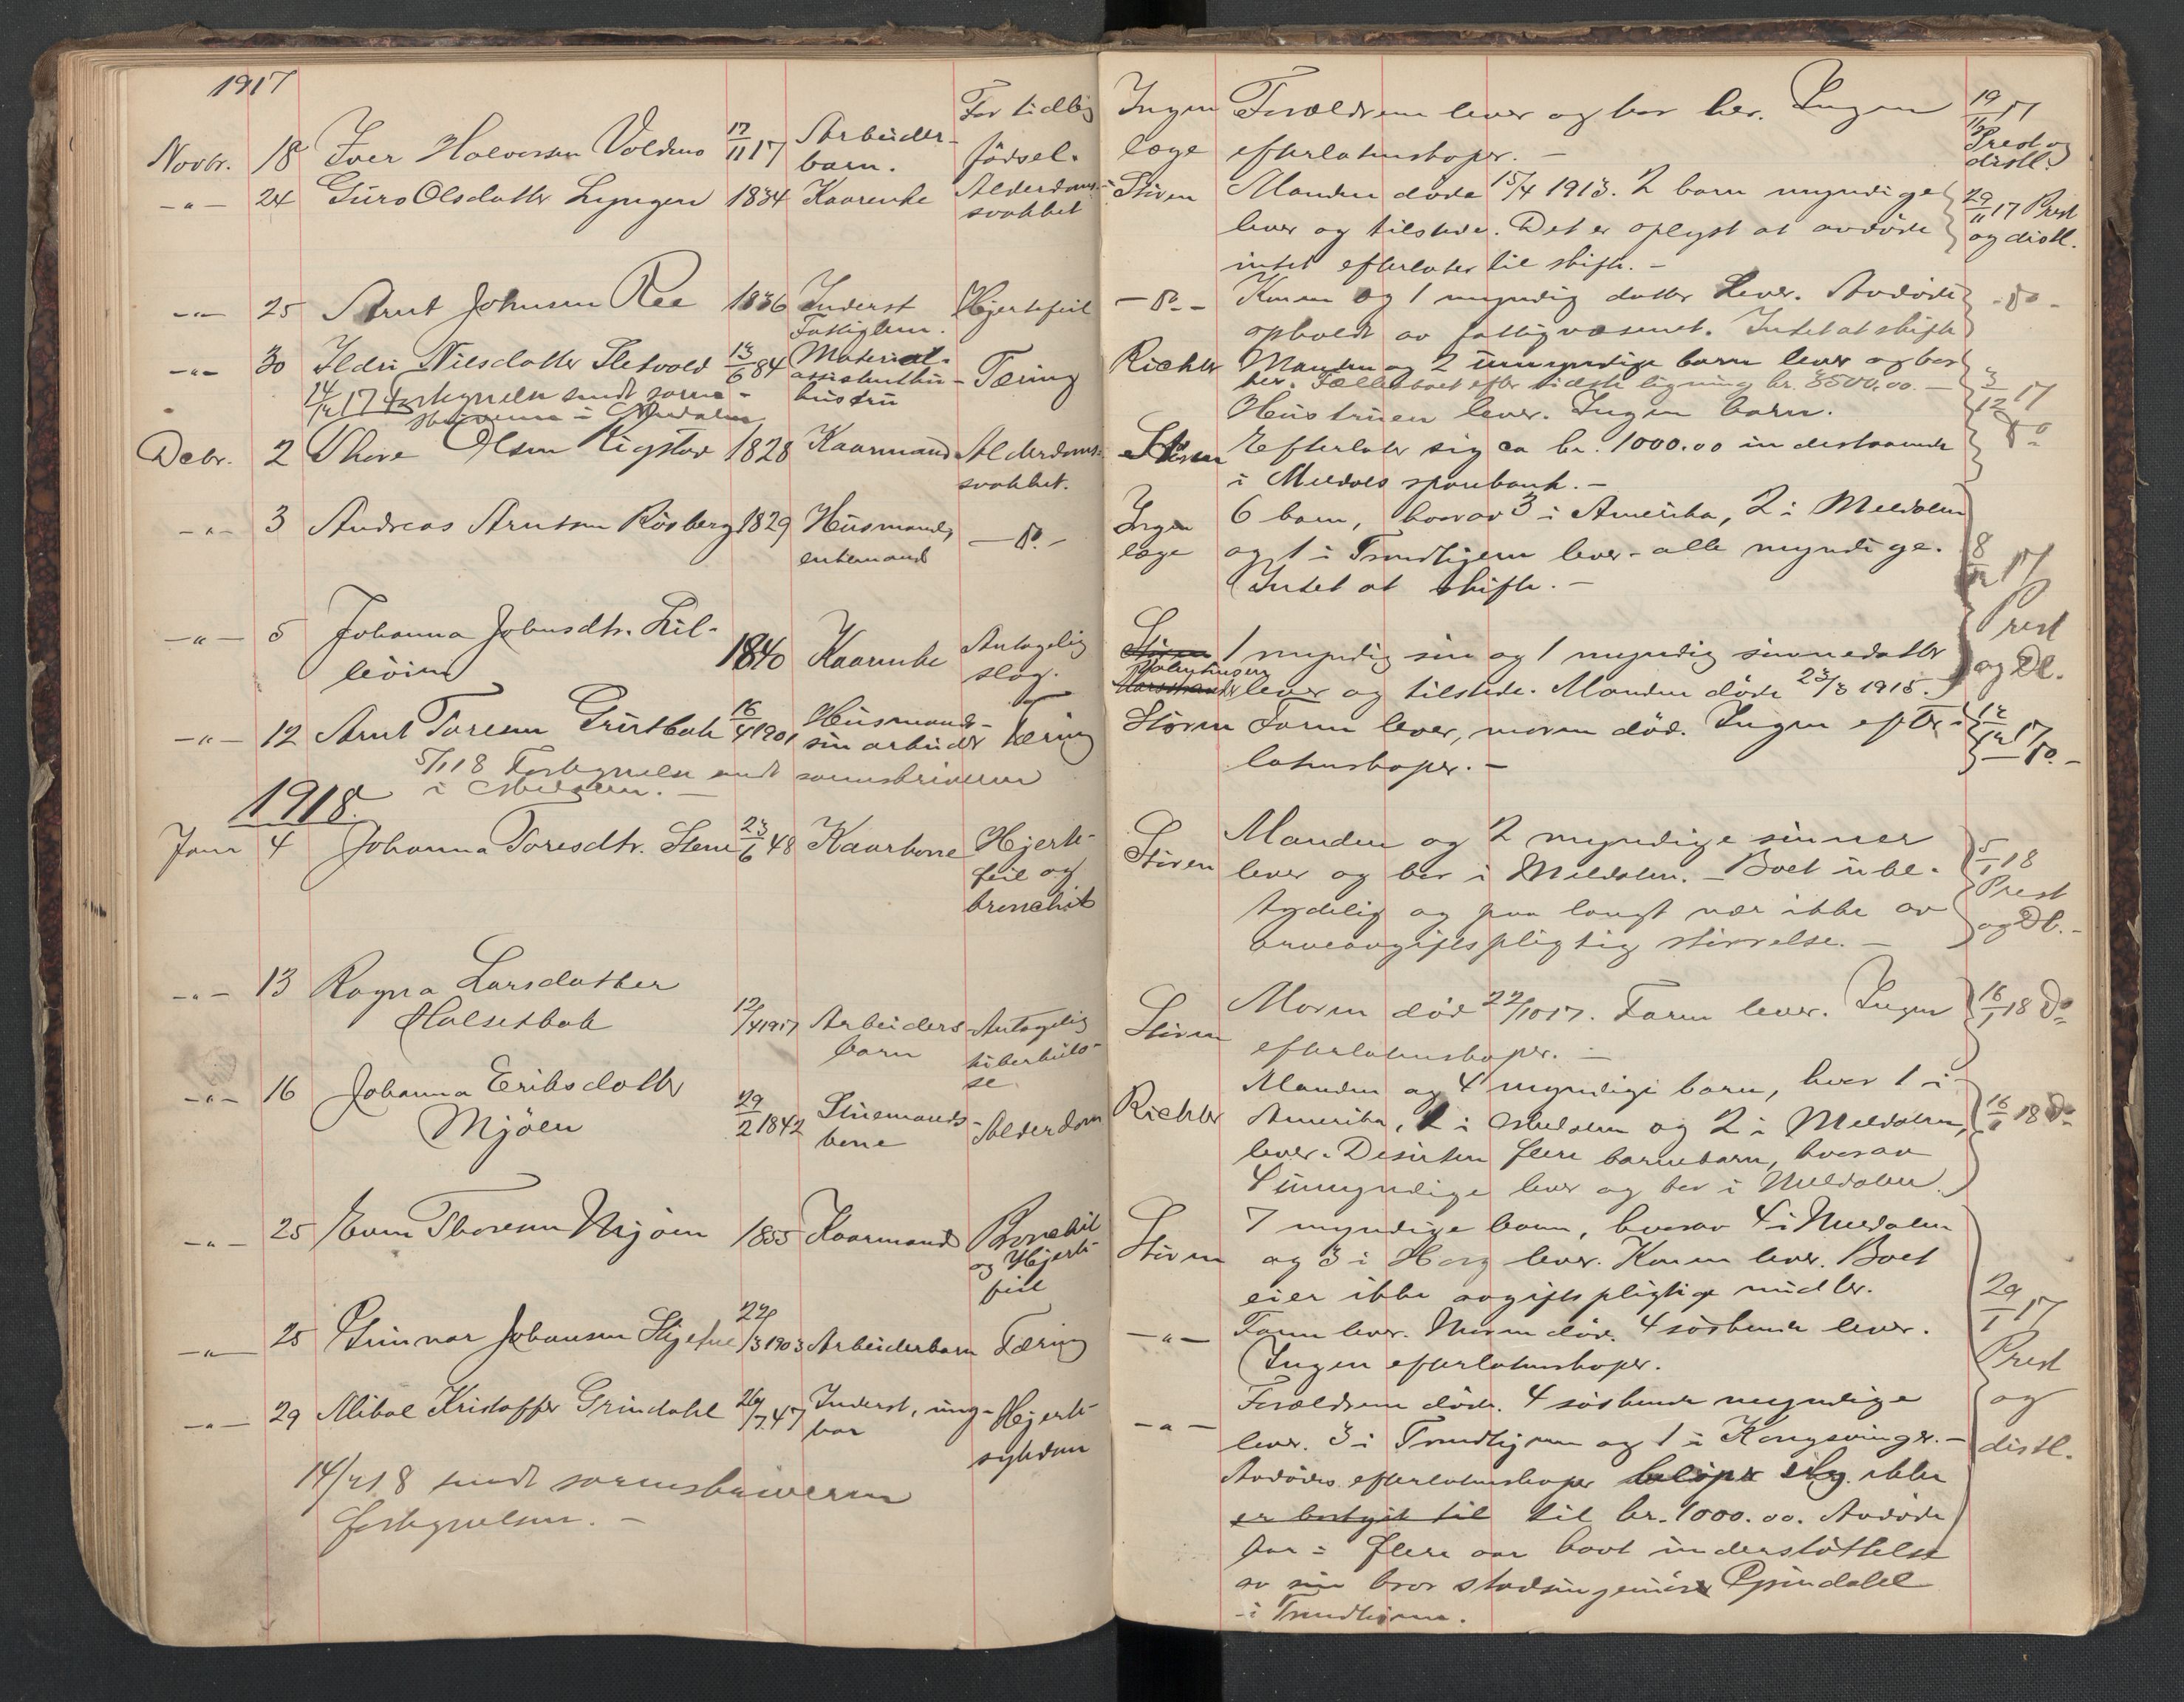 1917
Novbr. 18 Iver Halvorsen Voldmo 17/11 17 Arbeider- For tidlig
barn. födsel.
-"- 24 Guro Olsdatter Lyngen 1834 Kaarenke Alderdoms-
svakhet
-"- 25 Arnt Johnsen Ree 1836 Inderst Hjertefeil
Fattiglem.
-"- 30 Ildri Nilsdatter Sletvold 13/6 84 Material-
hustru Tæring
14/12 17 Fortegnelse sendt soren-
skriveren i Orkdalen
Decbr. 2 Thore Olsen Rigstad 1828 Kaarmand Alderdoms-
svakhet.
-"- 3 Andreas Arntsen Rösberg 1829 Husmand, - Do. -
enkemand
-"- 5 Johanna Johnsdtr. Lil-
löien 1840 Kaarenke Antagelig
slag.
-"- 12 Arnt Toresen Grutbak 16/4 1901 Husmands-
sön arbeider Tæring
5/1 18 Fortegnelse sendt sorenskriveren
i Orkdalen. -
1918.
Janr 4 Johanna Toresdtr. Stene 23/6 48 Kaarkone Hjerte-
feil og
bronchit
-"- 13 Ragna Larsdatter
Halsetbak 12/4 1917 Arbeiders Antagelig
barn tuberkulo-
se
-"- 16 Johanna Eriksdatter
Mjöen 29/2 1842 Stuemands- Alderdom
kone
-"- 25 Even Thoresen Mjöen 1855 Kaarmand Bronchit
og Hjerte-
feil
-"- 25 Gunnar Johansen 22/3 1903 Arbeiderbarn Tæring
-"- 29 Mikal Kristoffer Grindahl 26/7 47 Inderst, ung- Hjerte-
kar sykdom
14/2 18 sendt sorenskriveren
fortegnelsen. -
Ingen Forældrene lever og bor her. Ingen 19/11 17
læge efterlatenskaper. - Prest og
distl.
Stören Manden döde 15/4 1913. 2 barn myndige 29/11 17 Prest
lever og tilstede. Det er oplyst at avdöde og distl.
intet efterlater til skifte. -
- Do - Konen og 1 myndig datter lever. Avdöde - Do -
opholdt av fattigvæsenet. Intet at skifte
Richter Manden og 2 umyndige barn lever og bor
her. Fællesboet efter sidste ligning kr. 3500.00. - 3/12 17
Hustruen lever. Ingen barn. Do
Stören Efterlater sig ca kr. 1000.00 indestaaende
i Meldals sparebank. -
Ingen 6 barn, hvorav 3 i Amerika, 2 i Meldalen
læge og 1 i Trondhjem lever - alle myndige. 8/12 17
Intet at skifte. - Prest
Stören 1 myndig sön og 1 myndig sönnedatter og Dl.
lever og tilstede. Manden döde 23/3 1915.
Stören Faren lever, moren död. Ingen efter- 12/12 17
latenskaper. - - Do. -
Manden og 2 myndige sönner
Stören lever og bor i Meldalen. - Boet ube- 5/1 18
tydelig og paa langt nær ikke av Prest
arveavgiftspligtig störrelse. - og Dl. -
Moren död 22/10 17. Faren lever. Ingen 16/1 18 Do
Stören efterlatenskaper. -
Manden og 4 myndige barn, hvor 1 i
Richter Amerika, 1 i Orkdalen og 2 i Meldalen, 16/1 18 Do
lever. Desuten flere barnebarn, hvorav
4 umyndige lever og bor i Meldalen.
7 myndige barn, hvorav 4 i Meldalen
Stören og 3 i Horg lever. Konen lever. Boet
eier ikke avgiftspligtige midler. 29/1 17
-"- Faren lever. Moren död. 4 söskende lever.
Ingen efterlatenskaper. Prest
Forældrene döde. 4 söskende myndige og
-"- lever. 3 i Trondhjem og 1 i Kongsvinger. - distl.
Avdödes efterlatenskaper belöper sig ikke
til kr. 1000.00. Avdöde
har i flere aar havt understöttelse
av sin bror stadsingeniör Grindahl
i Trondhjem.